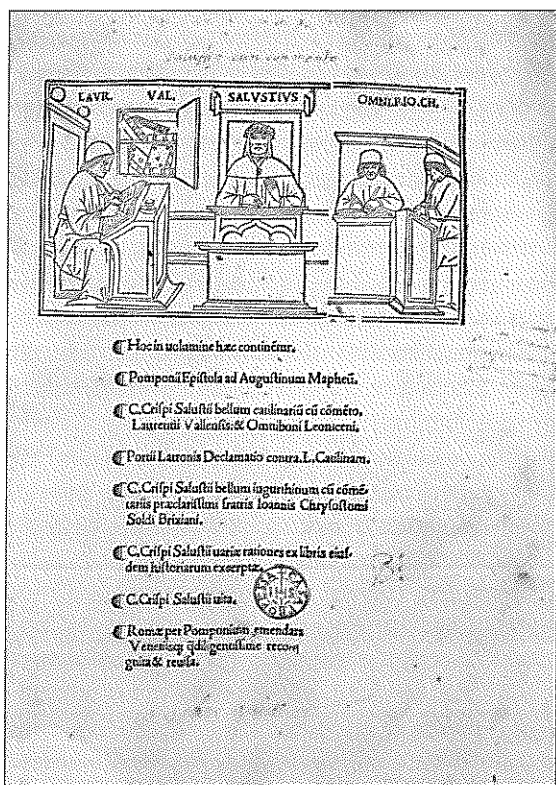 LAVR. VAL. SALVSTIVS OMNI.BIO.CH.
¶ Hoc in uolumine hæc continẽtur.
¶ Pomponii Epiſtola ad Auguſtinum Mapheũ.
¶ C.Criſpi Saluſtii bellum catilinariũ cũ cõmẽto.
Laurentii Vallenſis:& Omniboni Leoniceni.
¶ Portii Latronis Declamatio contra.L.Catilinam.
¶ C.Criſpi Saluſtii bellum iugurthinum cũ cõmẽ-
tariis præclariſſimi fratris Ioannis Chryſoſtomi
Soldi Brixiani.
¶ C.Criſpi Saluſtii uariæ rationes ex libris eiuſ-
dem hiſtoriarum exſerptæ.
¶ C.Criſpi Saluſtii uita.
IHS
¶ Romæ per Pomponium emendata
Venetiiſq; q̃diligentiſſime recog
gnita & reuiſa.